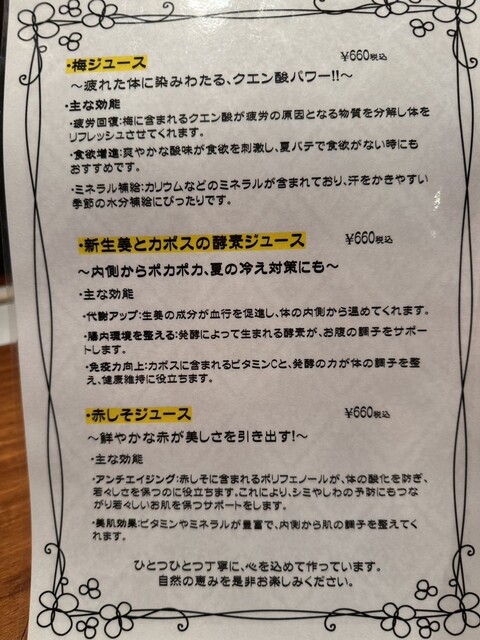 ・梅ジュース ￥660税込
～疲れた体に染みわたる、クエン酸パワー!!～
・主な効能
・疲労回復:梅に含まれるクエン酸が疲労の原因となる物質を分解し体を
リフレッシュさせてくれます。
・食欲増進:爽やかな酸味が食欲を刺激し、夏バテで食欲がない時にも
おすすめです。
・ミネラル補給:カリウムなどのミネラルが含まれており、汗をかきやすい
季節の水分補給にぴったりです。
・新生姜とカボスの酵素ジュース ￥660税込
～内側からポカポカ、夏の冷え対策にも～
・主な効能
・代謝アップ:生姜の成分が血行を促進し、体の内側から温めてくれます。
・腸内環境を整える:発酵によって生まれる酵素が、お腹の調子をサポー
トします。
・免疫力向上:カボスに含まれるビタミンCと、発酵の力が体の調子を整
え、健康維持に役立ちます。
・赤しそジュース ￥660税込
～鮮やかな赤が美しさを引き出す!～
・主な効能
・アンチエイジング:赤しそに含まれるポリフェノールが、体の酸化を防ぎ、
若々しさを保つのに役立ちます。これにより、シミやしわの予防にもつな
がり若々しいお肌を保つサポートをします。
・美肌効果:ビタミンやミネラルが豊富で、内側から肌の調子を整えてく
れます。
ひとつひとつ丁寧に、心を込めて作っています。
自然の恵みを是非お楽しみください。